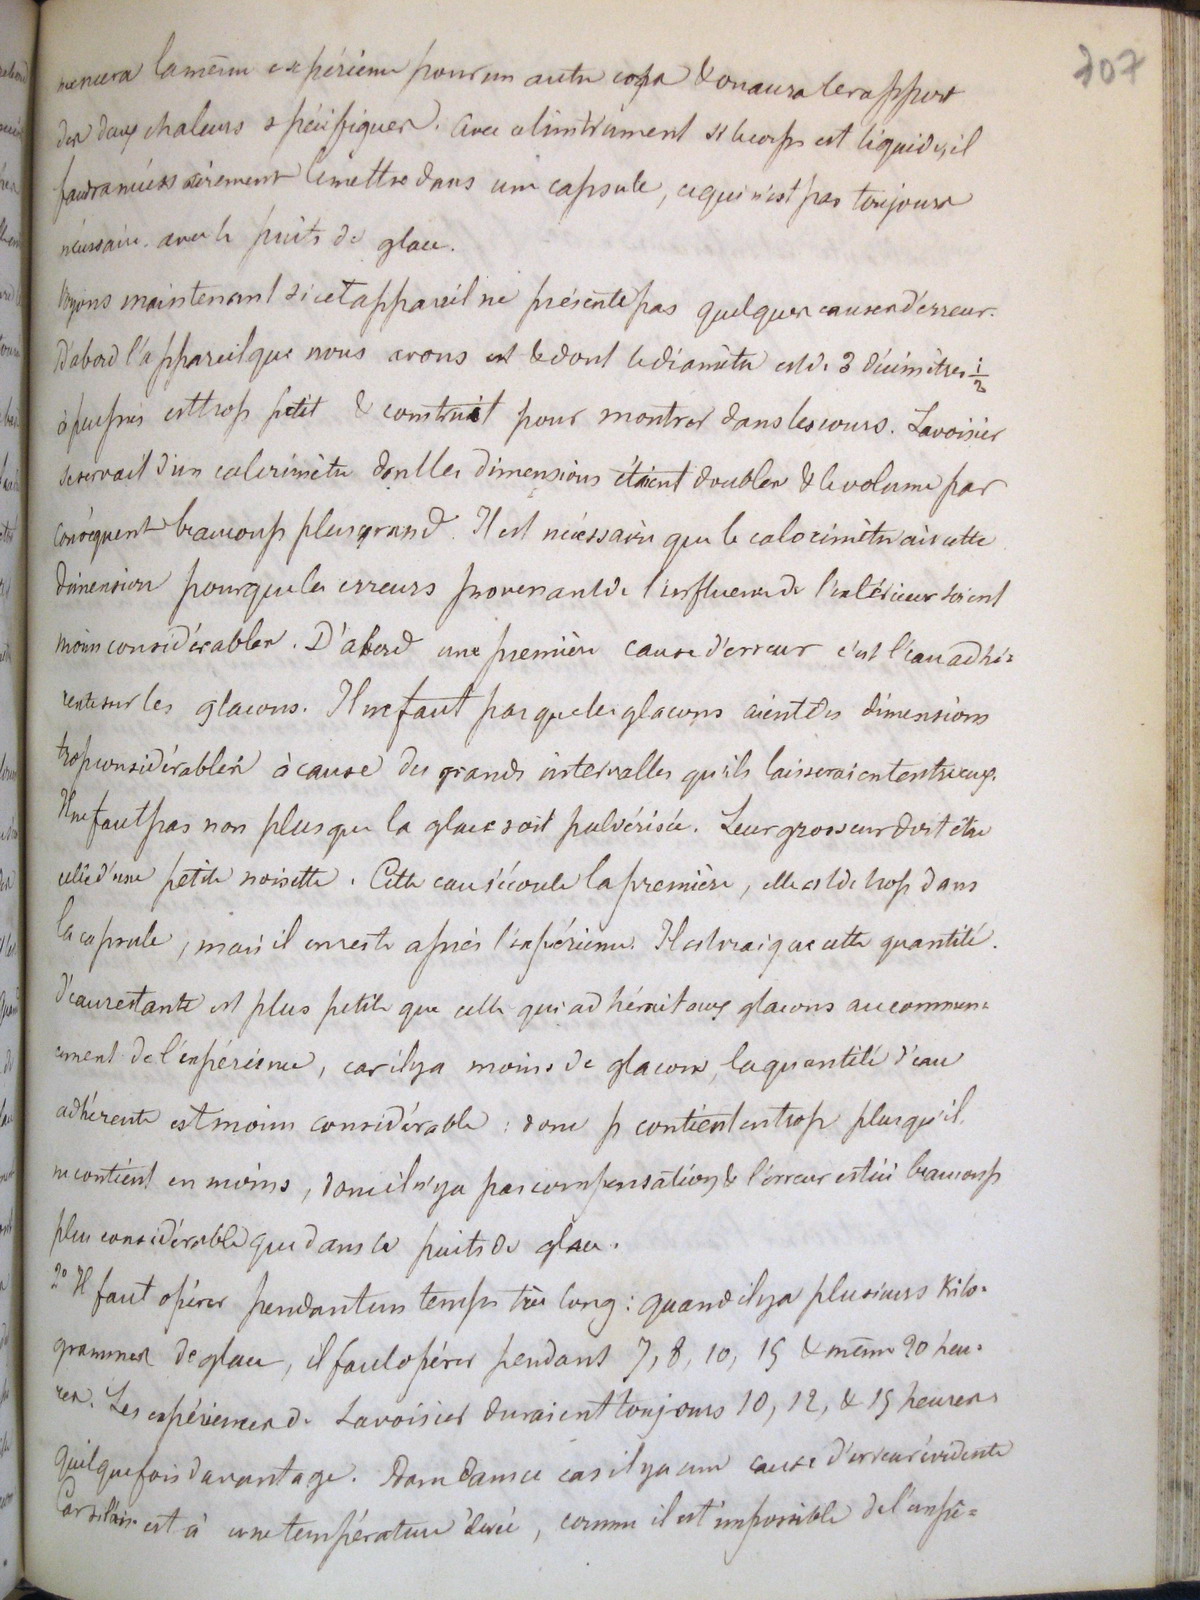 707
mencera la même expérience pour un autre corps & on aura le rapport
des deux chaleurs spécifiques. Avec cet instrument si le corps est liquide, il
faudra nécessairement le mettre dans une capsule, ce qui n'est pas toujours
nécessaire avec le puits de glace.
Voyons maintenant si cet appareil ne présente pas quelques causes d'erreur.
D'abord l'appareil que nous avons est & dont le diamètre est de 3 décimètres 1/2
à peu près est trop petit & construit pour montrer dans les cours. Lavoisier
se servait d'un calorimètre dont les dimensions étaient doubles & le volume par
conséquent beaucoup plus grand. Il est nécessaire que le calorimètre ait cette
dimension pour que les erreurs provenant de l'influence de l'extérieur soient
moins considérables. D'abord une première cause d'erreur c'est l'eau adhé=
rente sur les glaçons. Il ne faut pas que les glaçons aient des dimensions
trop considérables à cause des grands intervalles qu'ils laisseraient entre eux.
Il ne faut pas non plus que la glace soit pulvérisée. Leur grosseur doit être
celle d'une petite noisette. Cette eau s'écoule la première, elle est de trop dans
la capsule, mais il en reste après l'expérience. Il est vrai que cette quantité
d'eau restante est plus petite que celle qui adhérait aux glaçons au commen=
cement de l'expérience, car il y a moins de glaçons, la quantité d'eau
adhérente est moins considérable : donc p contient en trop plus qu'il
ne contient en moins, donc il n'y a pas compensation & l'erreur est ici beaucoup
plus considérable que dans le puits de glace.
2° Il faut opérer pendant un temps très long : quand il y a plusieurs kilo=
grammes de glace, il faut opérer pendant 7, 8, 10, 15 & même 20 heu=
res. Les expériences de Lavoisier duraient toujours 10, 12, & 15 heures
quelquefois davantage. Dans ce cas il y a une cause d'erreur évidente
Car si l'air est à une température élevée, comme il est impossible de l'empê=